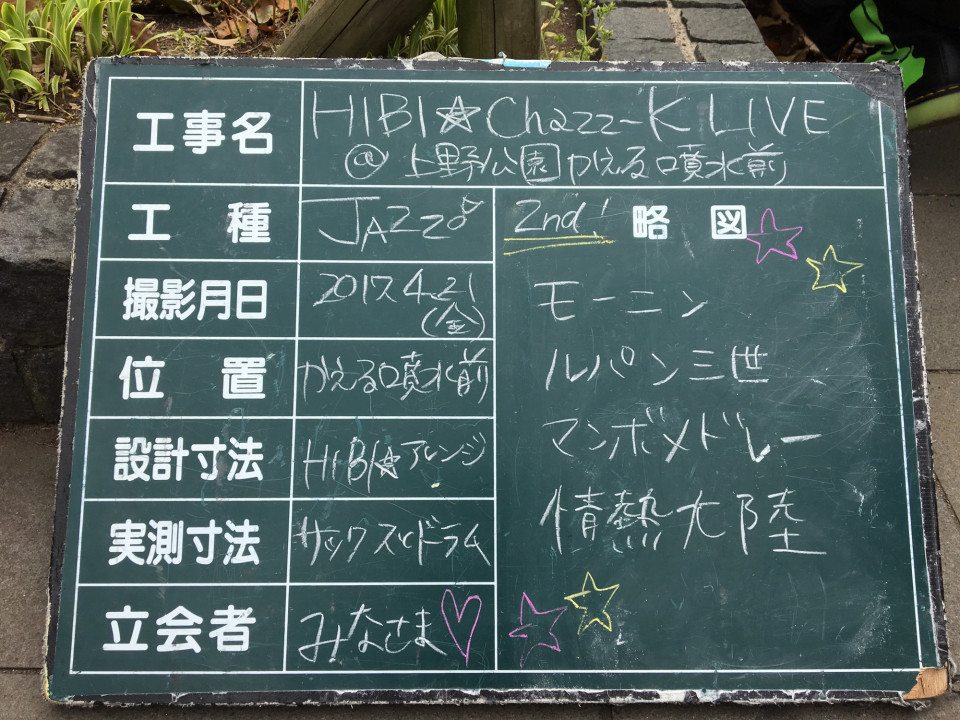 工事名 HIBI☆Chazz-K LIVE
@上野公園かえる噴水前
工種 JAZZ
2nd! 略図
撮影月日 2017.4.21
(金)
モーニン
位置 かえる噴水前
ルパン三世
設計寸法 HIBI☆アレンジ
マンボメドレー
実測寸法 サックス&ドラム
情熱大陸
立会者 みなさま♡